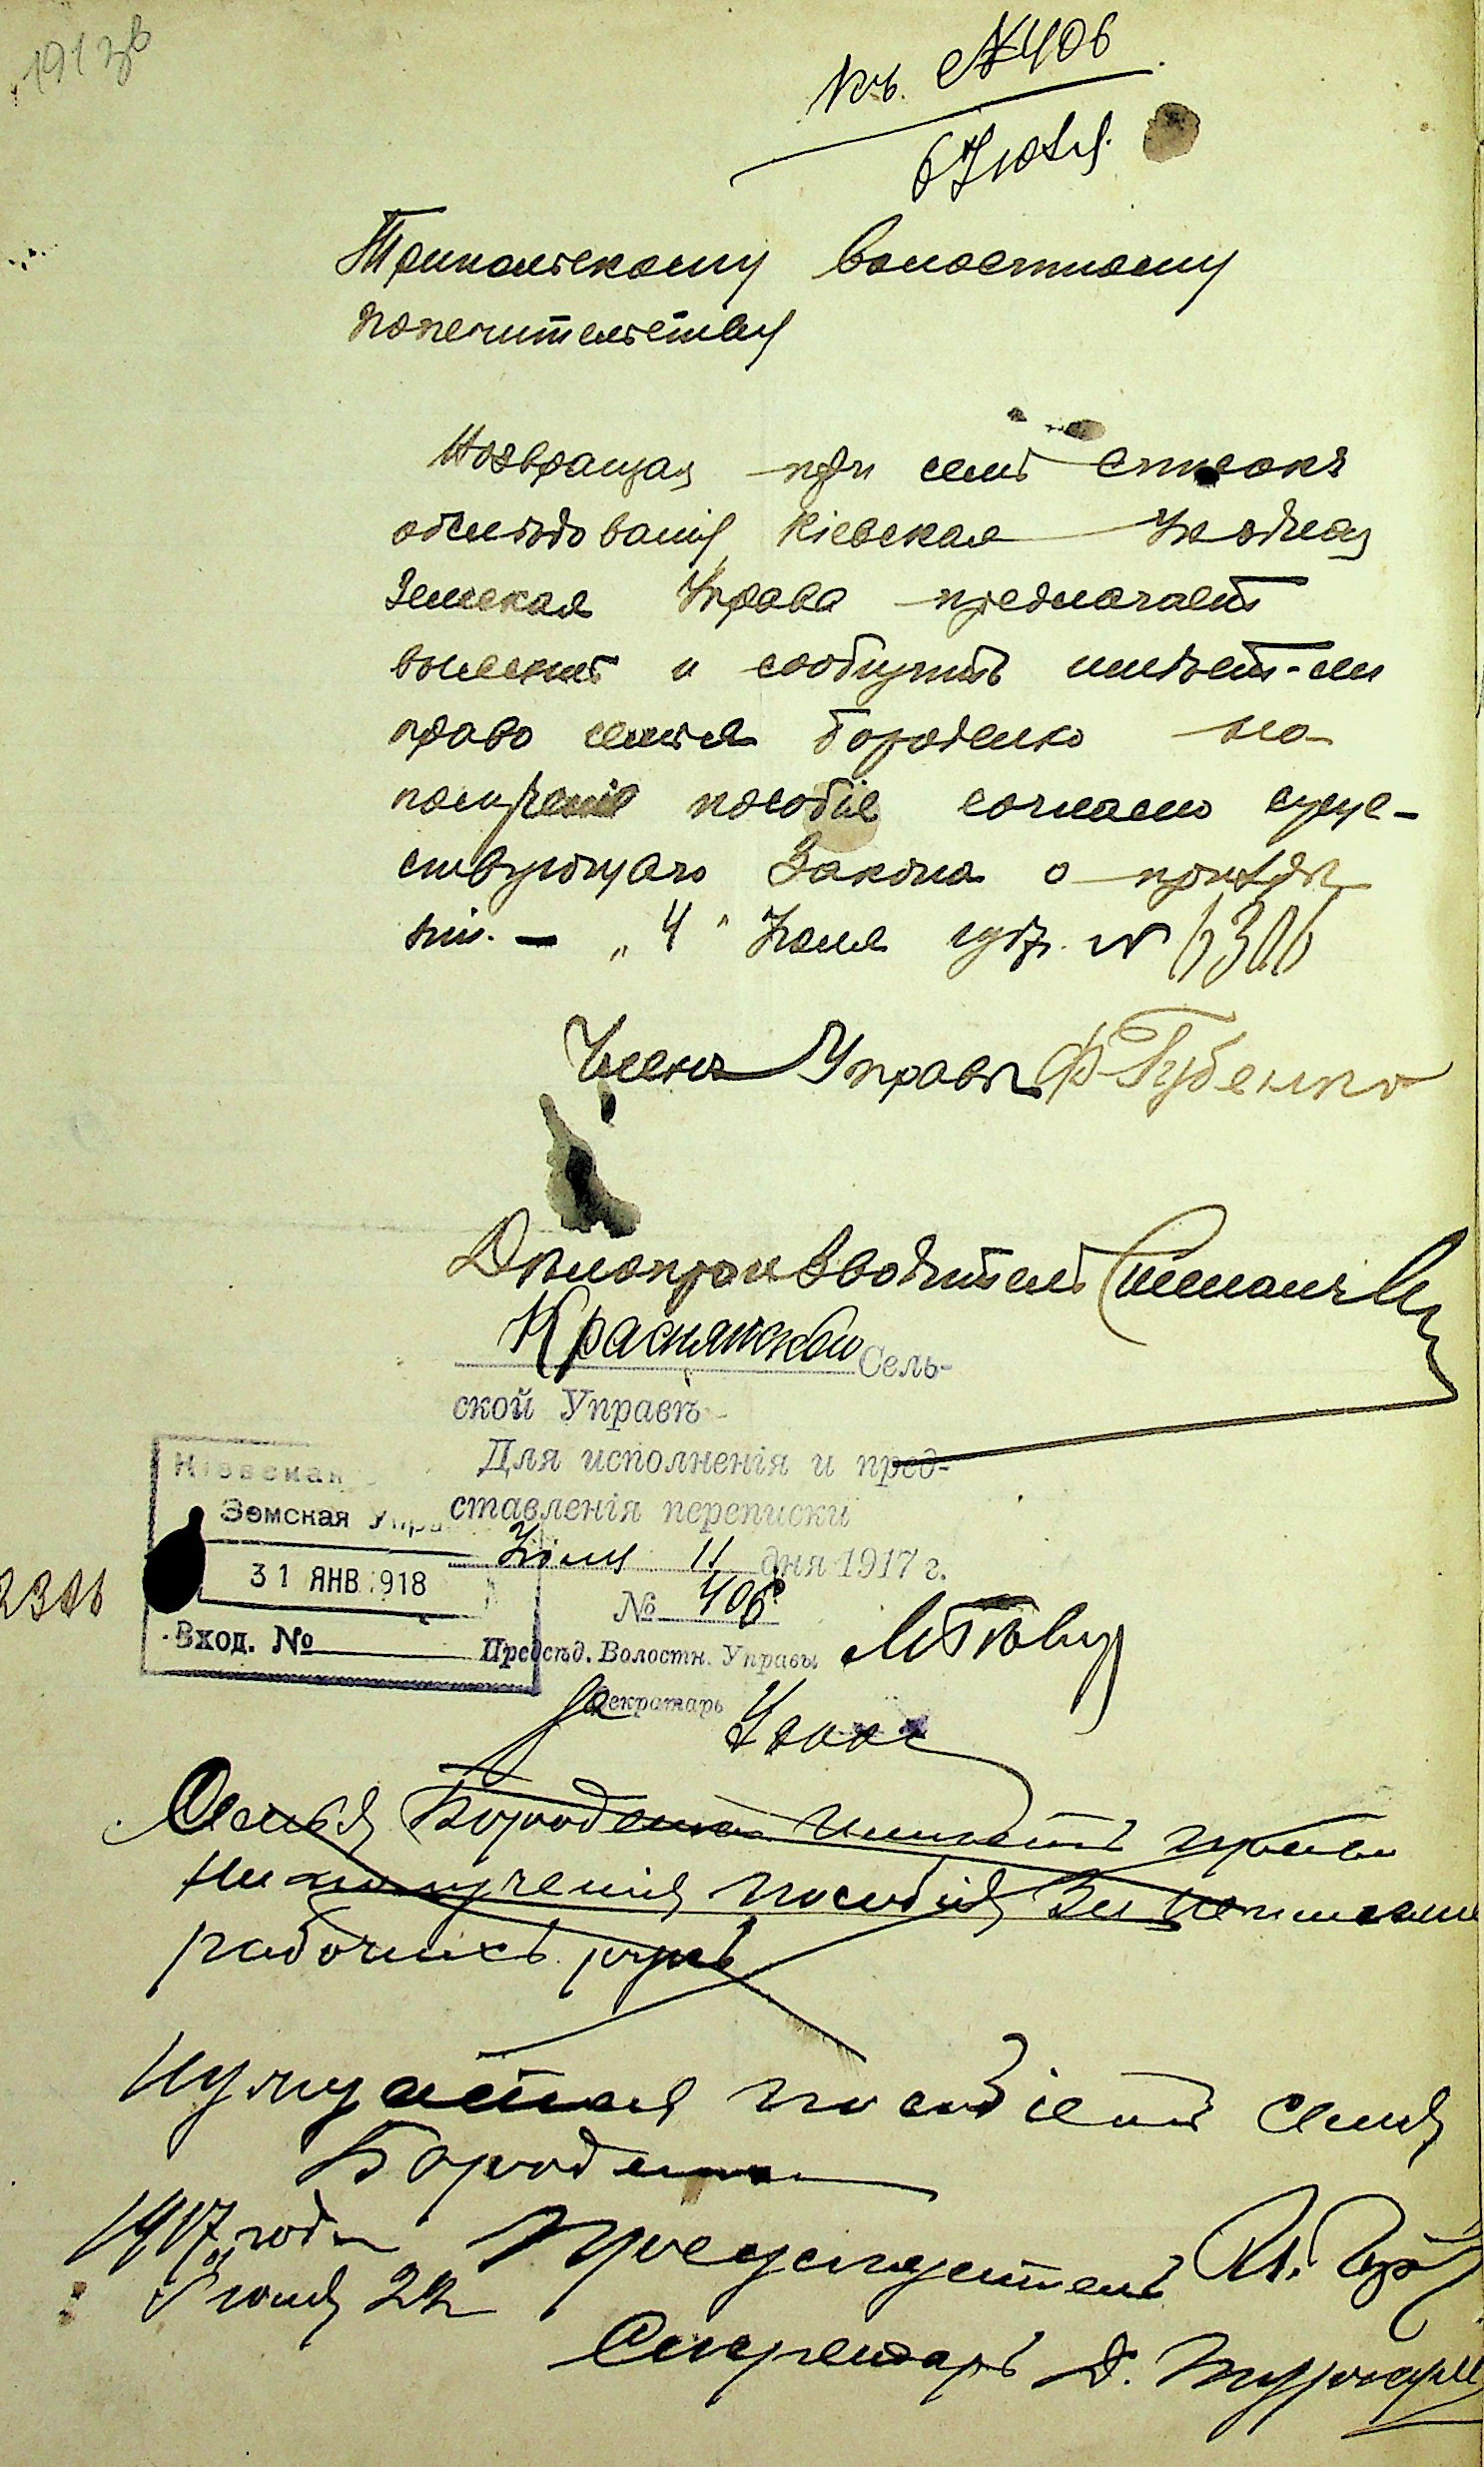 191 зв
Къ № 406
6 Іюля
Трипольскому волостному
попечительству
Возвращая при семъ списокъ
обслѣдованія Кіевская Уѣздная
Земская Управа предлагаетъ
выяснить и сообщить имѣетъ-ли
право семья Бороденко на
полученіе пособія согласно суще-
ствующаго Закона о призрѣ
ніи. — „4" Іюля 1917г. № 6306
Членъ Управы Ф Губенко
Дѣлопроизводитель
Краснянской Сель-
ской Управѣ
Для исполненія и пред-
ставленія переписки
Іюля 11 дня 1917 г.
№ 406
Предсѣд. Волостн. Управы
За Секретарь
Кіевская
Земская Упра
31 ЯНВ 1918
Вход. №
Семья Бороденко имѣетъ право
на полученія пособія За неимѣние
рабочихъ рукъ
Нуждается пособіемъ семья
Бороденко
1917 года Председатель
Июля 22
Секретарь